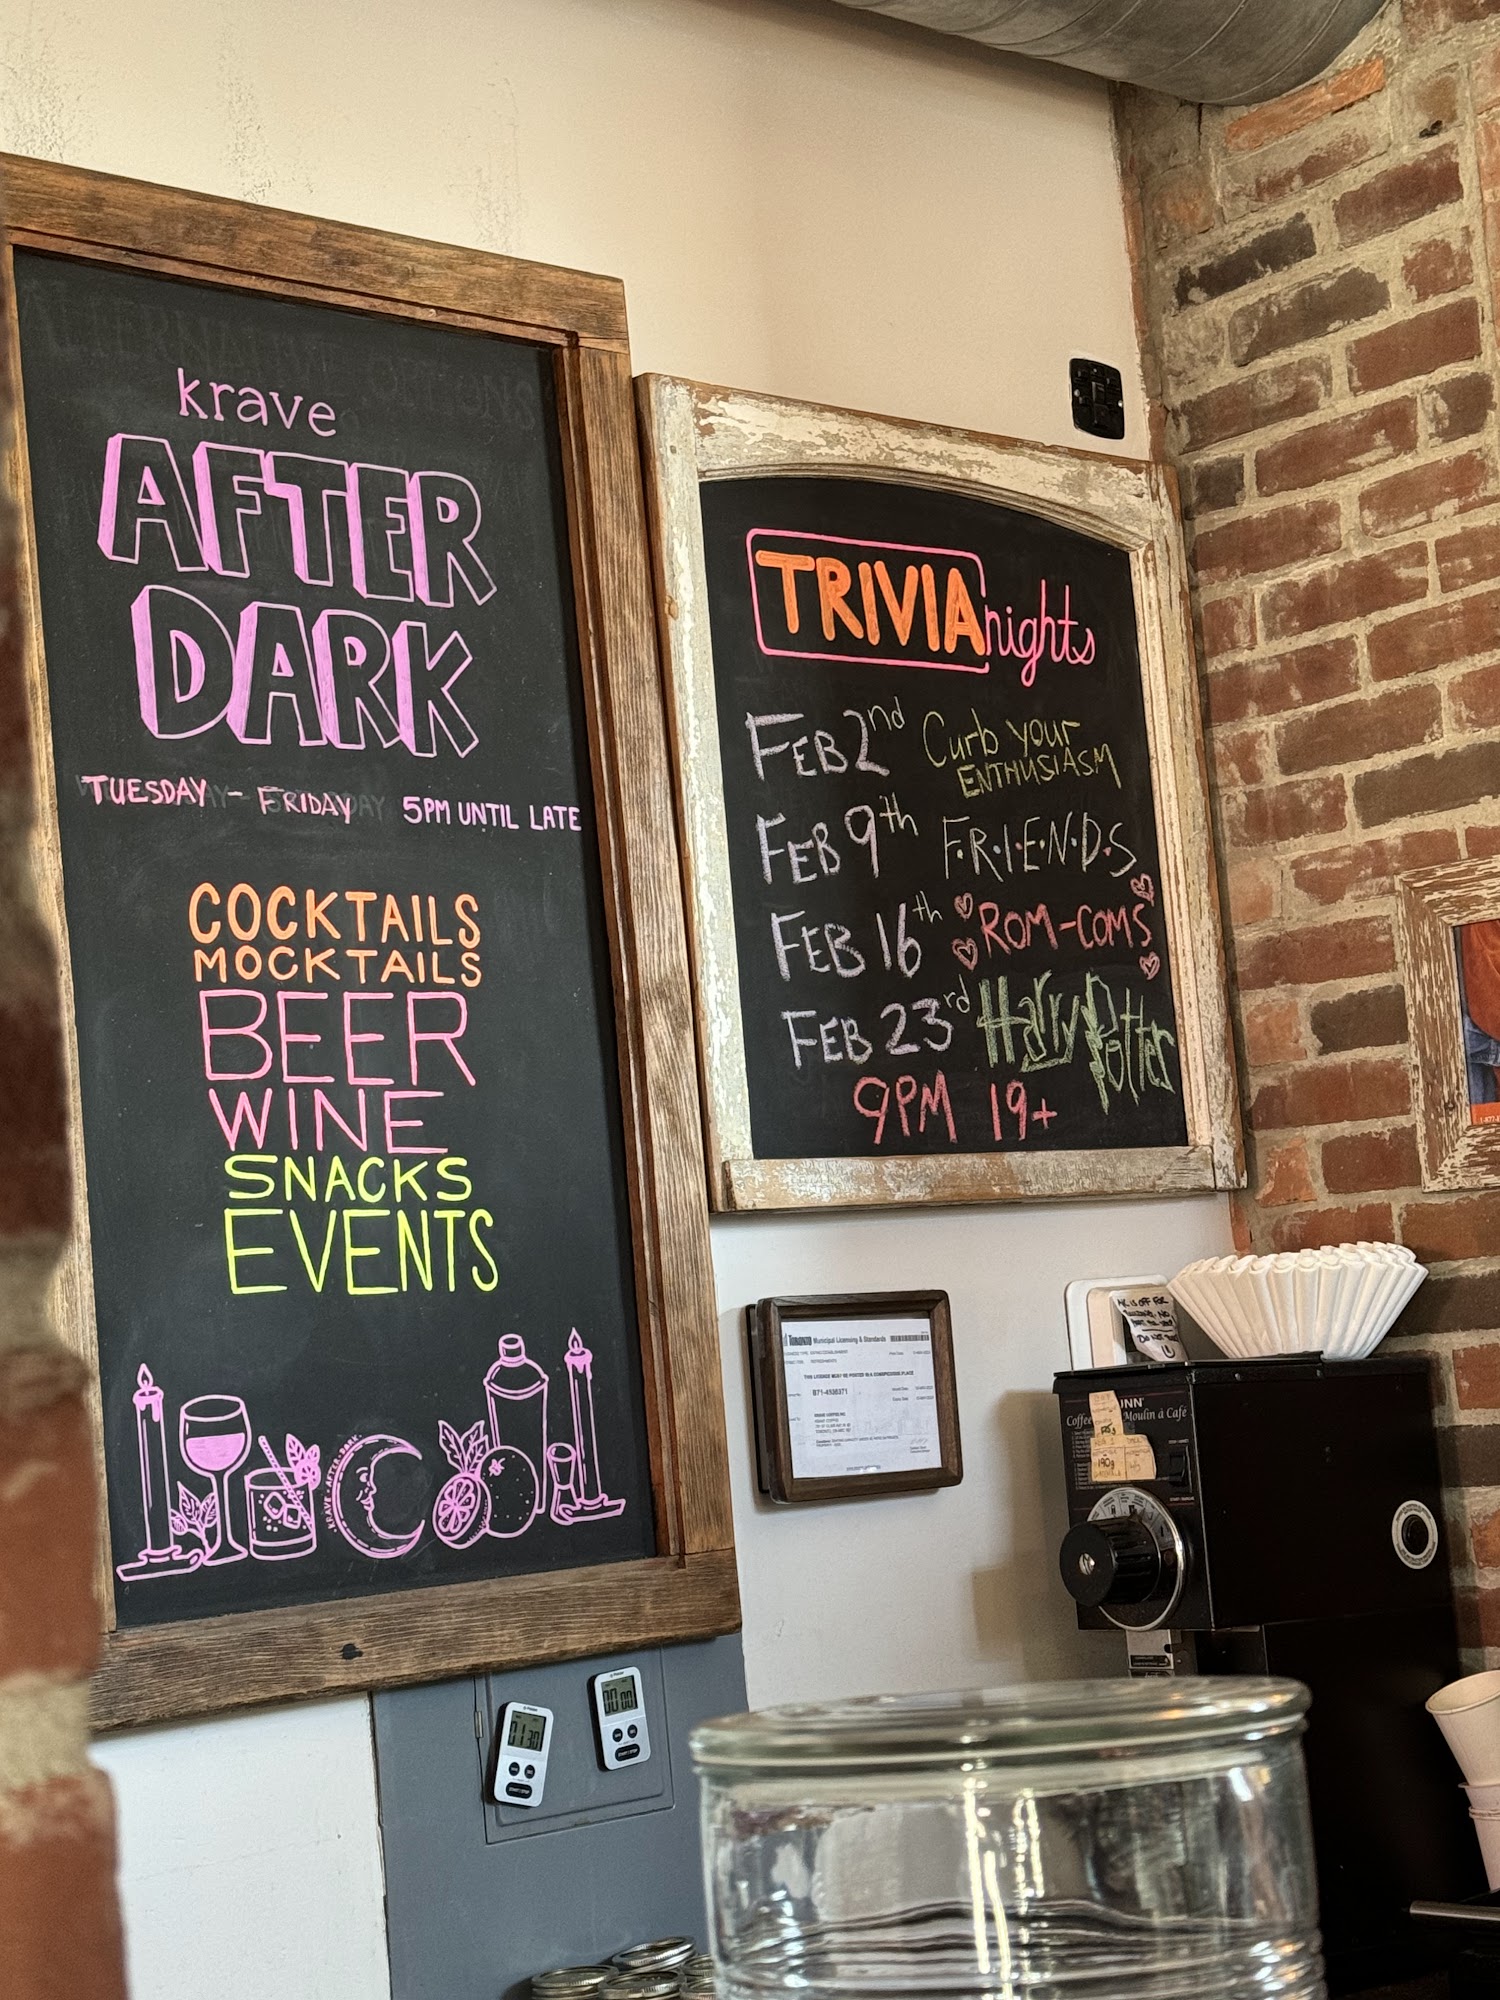 krave
AFTER
DARK
TUESDAY - FRIDAY 5PM UNTIL LATE
COCKTAILS
MOCKTAILS
BEER
WINE
SNACKS
EVENTS
KRAVE·AFTER·DARK
TRIVIA nights
FEB 2nd Curb your
ENTHUSIASM
FEB 9th F·R·I·E·N·D·S
FEB 16th ROM-COMS
FEB 23rd Harry Potter
9PM 19+
TORONTO Municipal Licensing & Standards
THIS LICENCE MUST BE POSTED IN A CONSPICUOUS PLACE
B71-4936371
OFF FOR
NO
DO NOT
Coffee Moulin à Café
190g